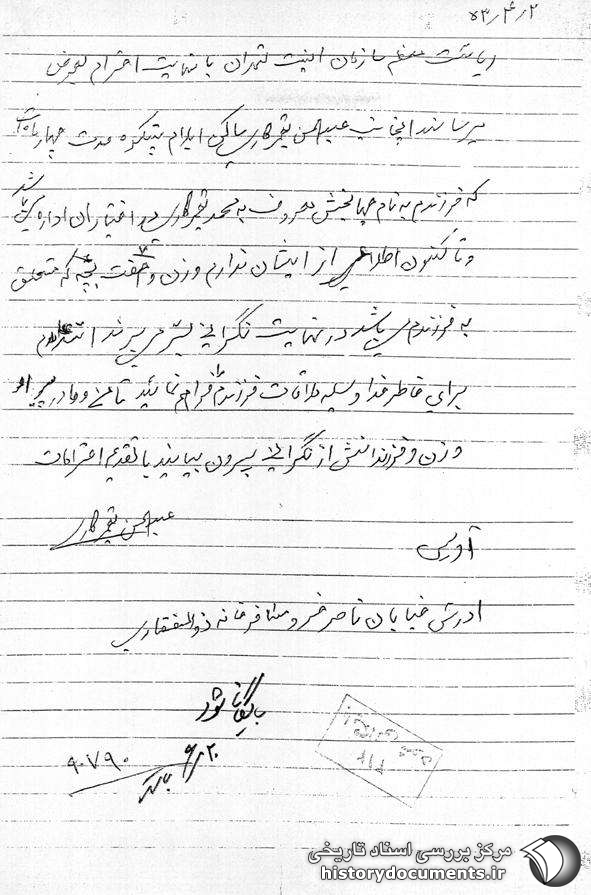 ۵۳٫۴٫۲
ریاست معظم سازمان امنیت تهران با نهایت احترام بعرض
میرساند اینجانب عبدالحسن ساکن ایلام مدت چهار ماه است
که فرزندم به نام جهانبخش معروف به محمد در اختیار آن اداره می باشد
و تا کنون اطلاعی از ایشان ندارم و زن و هفت بچه که متعلق
به فرزندم می باشد در نهایت نگرانی بسر می برند استدعا دارم
برای خاطر خدا وسیله ملاقات فرزندم را فراهم نمائید تا من و مادر پیر او
و زن و فرزندانش از نگرانی بیرون بیایند با تقدیم احترامات
عبدالحسن
آدرس
ادرس خیابان ناصر خسرو مسافرخانه ذوالفقاری
بایگانی شود
۹۰۷۹۰
مرکز بررسی اسناد تاریخی
historydocuments.ir